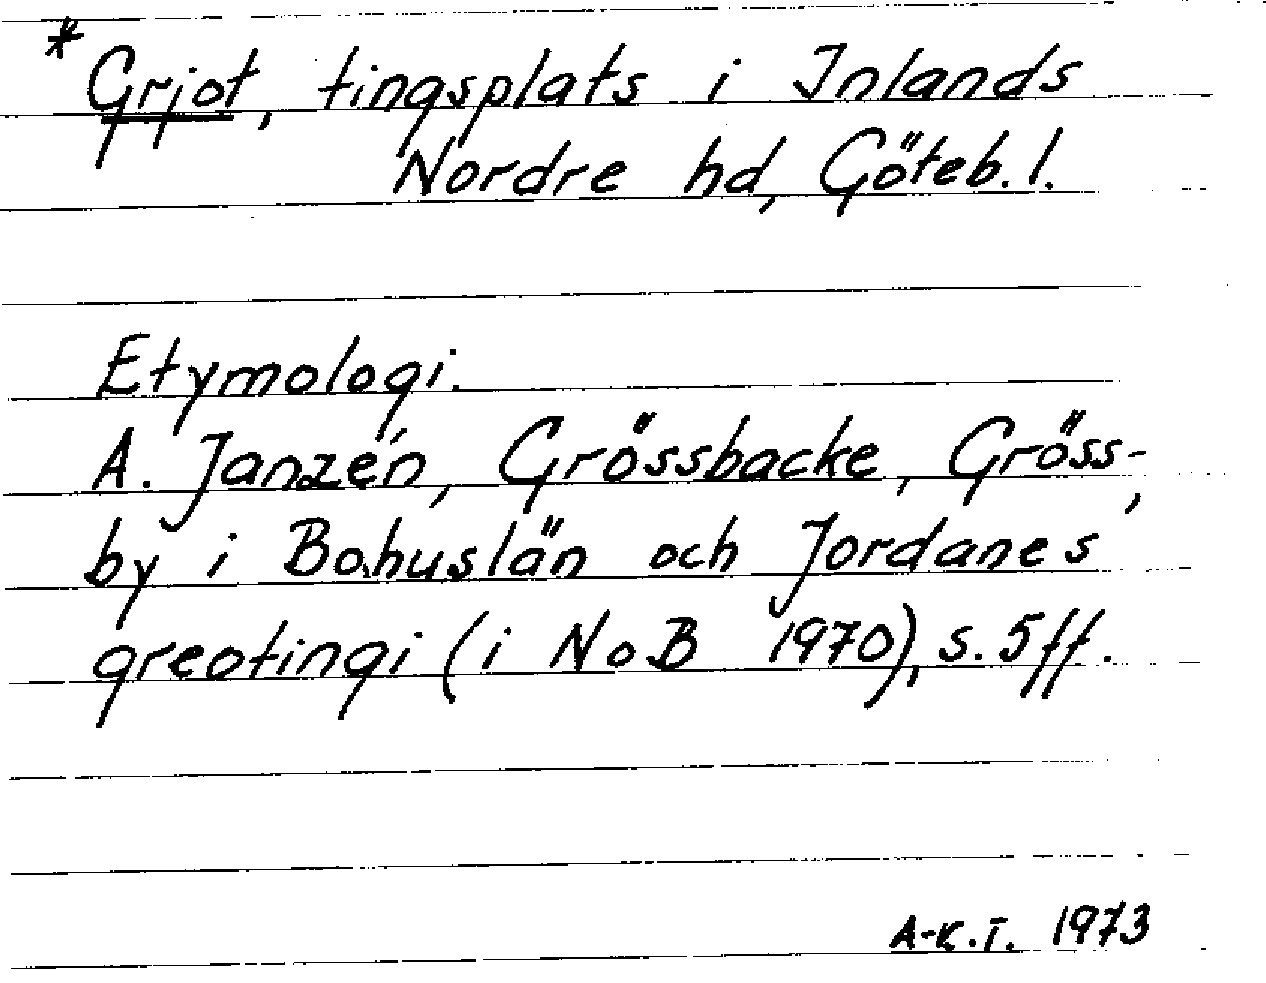 *Grjot, tingsplats i Inlands
Nordre hd, Göteb. l.
Etymologi.
A. Janzén, Grössbacke, Gröss-
by i Bohuslän och Jordanes'
greotingi (i NoB 1970), s. 5ff.
A-K.T. 1973